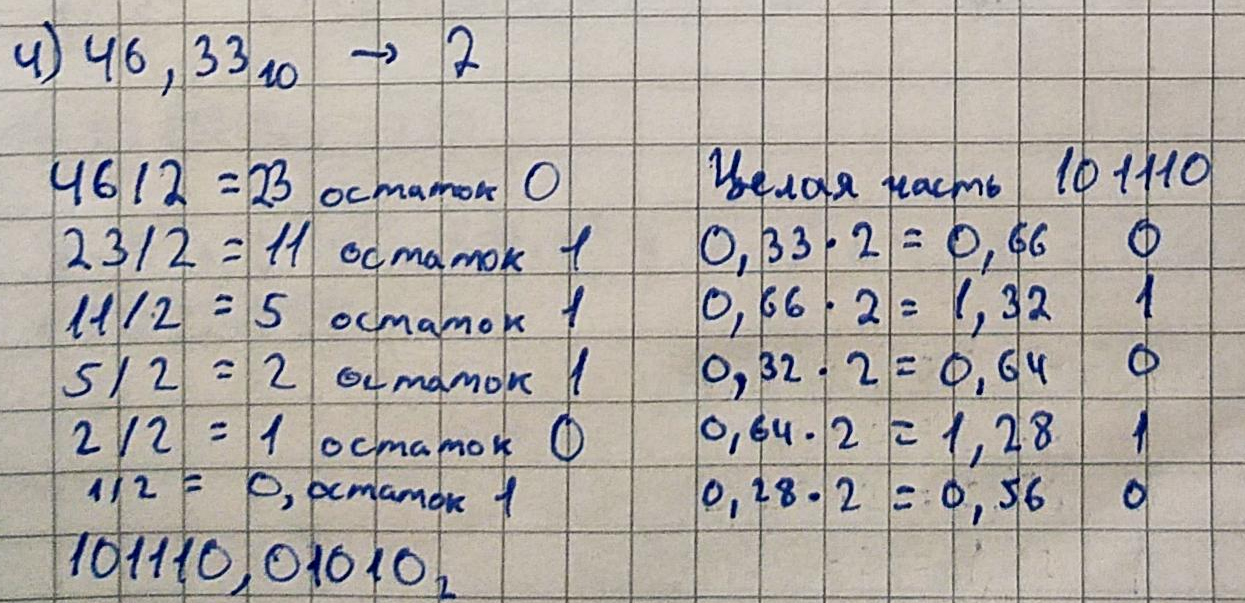 4) 46,33₁₀ → 2
46/2 = 23 остаток 0
23/2 = 11 остаток 1
11/2 = 5 остаток 1
5/2 = 2 остаток 1
2/2 = 1 остаток 0
1/2 = 0, остаток 1
101110,01010₂
Целая часть 101110
0,33·2 = 0,66 0
0,66·2 = 1,32 1
0,32·2 = 0,64 0
0,64·2 = 1,28 1
0,28·2 = 0,56 0